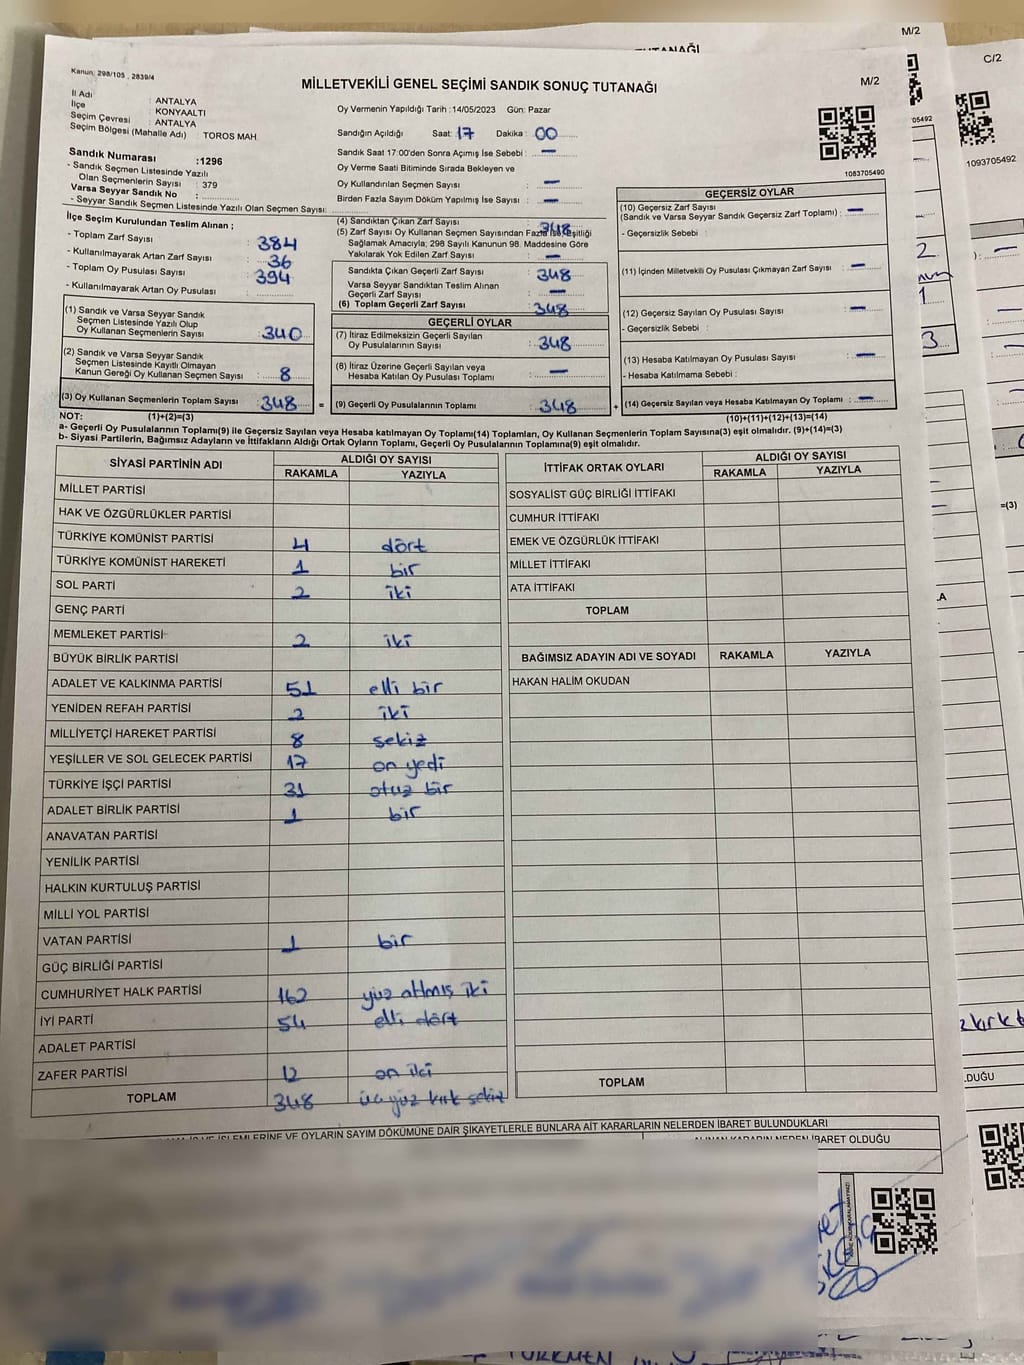 M/2
C/2
Kanun, 298/105 , 2839/4
MİLLETVEKİLİ GENEL SEÇİMİ SANDIK SONUÇ TUTANAĞI
M/2
İl Adı : ANTALYA
İlçe : KONYAALTI
Seçim Çevresi : ANTALYA
Seçim Bölgesi (Mahalle Adı) : TOROS MAH
Oy Vermenin Yapıldığı Tarih :14/05/2023 Gün: Pazar
Sandığın Açıldığı Saat: 17 Dakika : 00
Sandık Saat 17:00'den Sonra Açımış İse Sebebi : —
Oy Verme Saati Bitiminde Sırada Bekleyen ve
Oy Kullandırılan Seçmen Sayısı : —
Birden Fazla Sayım Döküm Yapılmış İse Sayısı : —
1083705490
1093705492
05492
Sandık Numarası :1296
- Sandık Seçmen Listesinde Yazılı
Olan Seçmenlerin Sayısı : 379
Varsa Seyyar Sandık No :
- Seyyar Sandık Seçmen Listesinde Yazılı Olan Seçmen Sayısı:
İlçe Seçim Kurulundan Teslim Alınan ;
- Toplam Zarf Sayısı : 384
- Kullanılmayarak Artan Zarf Sayısı : 36
- Toplam Oy Pusulası Sayısı : 394
- Kullanılmayarak Artan Oy Pusulası :
(1) Sandık ve Varsa Seyyar Sandık
Seçmen Listesinde Yazılı Olup
Oy Kullanan Seçmenlerin Sayısı : 340
(2) Sandık ve Varsa Seyyar Sandık
Seçmen Listesinde Kayıtlı Olmayan
Kanun Gereği Oy Kullanan Seçmen Sayısı : 8
(3) Oy Kullanan Seçmenlerin Toplam Sayısı : 348
(4) Sandıktan Çıkan Zarf Sayısı : 348
(5) Zarf Sayısı Oy Kullanan Seçmen Sayısından Fazla İse, Eşitliği
Sağlamak Amacıyla; 298 Sayılı Kanunun 98. Maddesine Göre
Yakılarak Yok Edilen Zarf Sayısı : —
Sandıkta Çıkan Geçerli Zarf Sayısı : 348
Varsa Seyyar Sandıktan Teslim Alınan
Geçerli Zarf Sayısı : —
(6) Toplam Geçerli Zarf Sayısı : 348
GEÇERLİ OYLAR
(7) İtiraz Edilmeksizin Geçerli Sayılan
Oy Pusulalarının Sayısı : 348
(8) İtiraz Üzerine Geçerli Sayılan veya
Hesaba Katılan Oy Pusulası Toplamı : —
= (9) Geçerli Oy Pusulalarının Toplamı : 348
GEÇERSİZ OYLAR
(10) Geçersiz Zarf Sayısı
(Sandık ve Varsa Seyyar Sandık Geçersiz Zarf Toplamı) : —
- Geçersizlik Sebebi :
(11) İçinden Milletvekili Oy Pusulası Çıkmayan Zarf Sayısı : —
(12) Geçersiz Sayılan Oy Pusulası Sayısı : —
- Geçersizlik Sebebi :
(13) Hesaba Katılmayan Oy Pusulası Sayısı : —
- Hesaba Katılmama Sebebi :
+ (14) Geçersiz Sayılan veya Hesaba Katılmayan Oy Toplamı : —
NOT: (1)+(2)=(3) (10)+(11)+(12)+(13)=(14)
a- Geçerli Oy Pusulalarının Toplamı(9) ile Geçersiz Sayılan veya Hesaba katılmayan Oy Toplamı(14) Toplamları, Oy Kullanan Seçmenlerin Toplam Sayısına(3) eşit olmalıdır. (9)+(14)=(3)
b- Siyasi Partilerin, Bağımsız Adayların ve İttifakların Aldığı Ortak Oyların Toplamı, Geçerli Oy Pusulalarının Toplamına(9) eşit olmalıdır.
SİYASİ PARTİNİN ADI ALDIĞI OY SAYISI
RAKAMLA YAZIYLA
MİLLET PARTİSİ
HAK VE ÖZGÜRLÜKLER PARTİSİ
TÜRKİYE KOMÜNİST PARTİSİ 4 dört
TÜRKİYE KOMÜNİST HAREKETİ 1 bir
SOL PARTİ 2 iki
GENÇ PARTİ
MEMLEKET PARTİSİ 2 iki
BÜYÜK BİRLİK PARTİSİ
ADALET VE KALKINMA PARTİSİ 51 elli bir
YENİDEN REFAH PARTİSİ 2 iki
MİLLİYETÇİ HAREKET PARTİSİ 8 sekiz
YEŞİLLER VE SOL GELECEK PARTİSİ 17 on yedi
TÜRKİYE İŞÇİ PARTİSİ 31 otuz bir
ADALET BİRLİK PARTİSİ 1 bir
ANAVATAN PARTİSİ
YENİLİK PARTİSİ
HALKIN KURTULUŞ PARTİSİ
MİLLİ YOL PARTİSİ
VATAN PARTİSİ 1 bir
GÜÇ BİRLİĞİ PARTİSİ
CUMHURİYET HALK PARTİSİ 162 yüz altmış iki
İYİ PARTİ 54 elli dört
ADALET PARTİSİ
ZAFER PARTİSİ 12 on iki
TOPLAM 348 üçyüz kırk sekiz
İTTİFAK ORTAK OYLARI ALDIĞI OY SAYISI
RAKAMLA YAZIYLA
SOSYALİST GÜÇ BİRLİĞİ İTTİFAKI
CUMHUR İTTİFAKI
EMEK VE ÖZGÜRLÜK İTTİFAKI
MİLLET İTTİFAKI
ATA İTTİFAKI
TOPLAM
BAĞIMSIZ ADAYIN ADI VE SOYADI RAKAMLA YAZIYLA
HAKAN HALİM OKUDAN
TOPLAM
İŞLEMLERİNE VE OYLARIN SAYIM DÖKÜMÜNE DAİR ŞİKAYETLERLE BUNLARA AİT KARARLARIN NELERDEN İBARET BULUNDUKLARI
ALINAN KARARIN NEDEN İBARET OLDUĞU
2
1
3
=(3)
DUĞU
TÜRKMEN